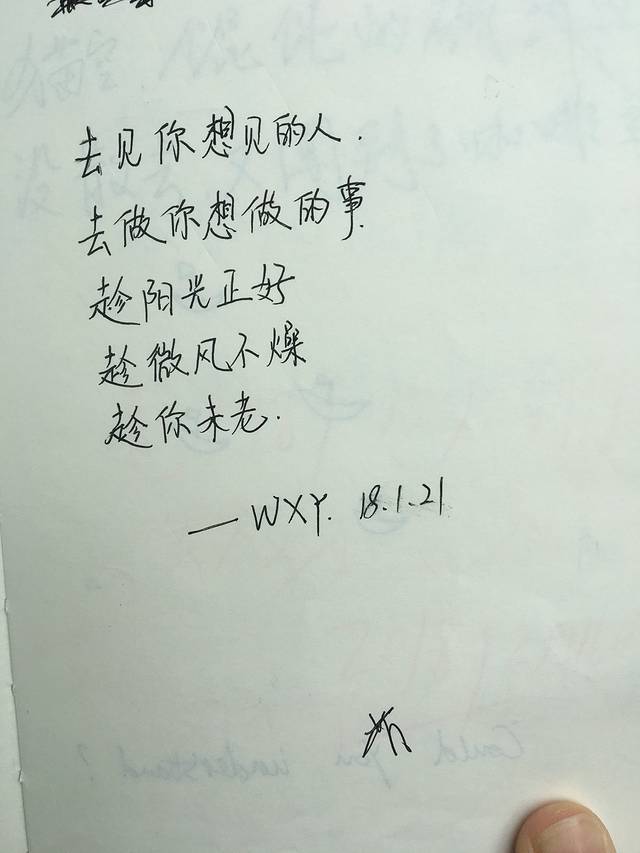 去见你想见的人.
去做你想做的事.
趁阳光正好
趁微风不燥
趁你未老.
— WXY. 18.1.21
Could you understand?